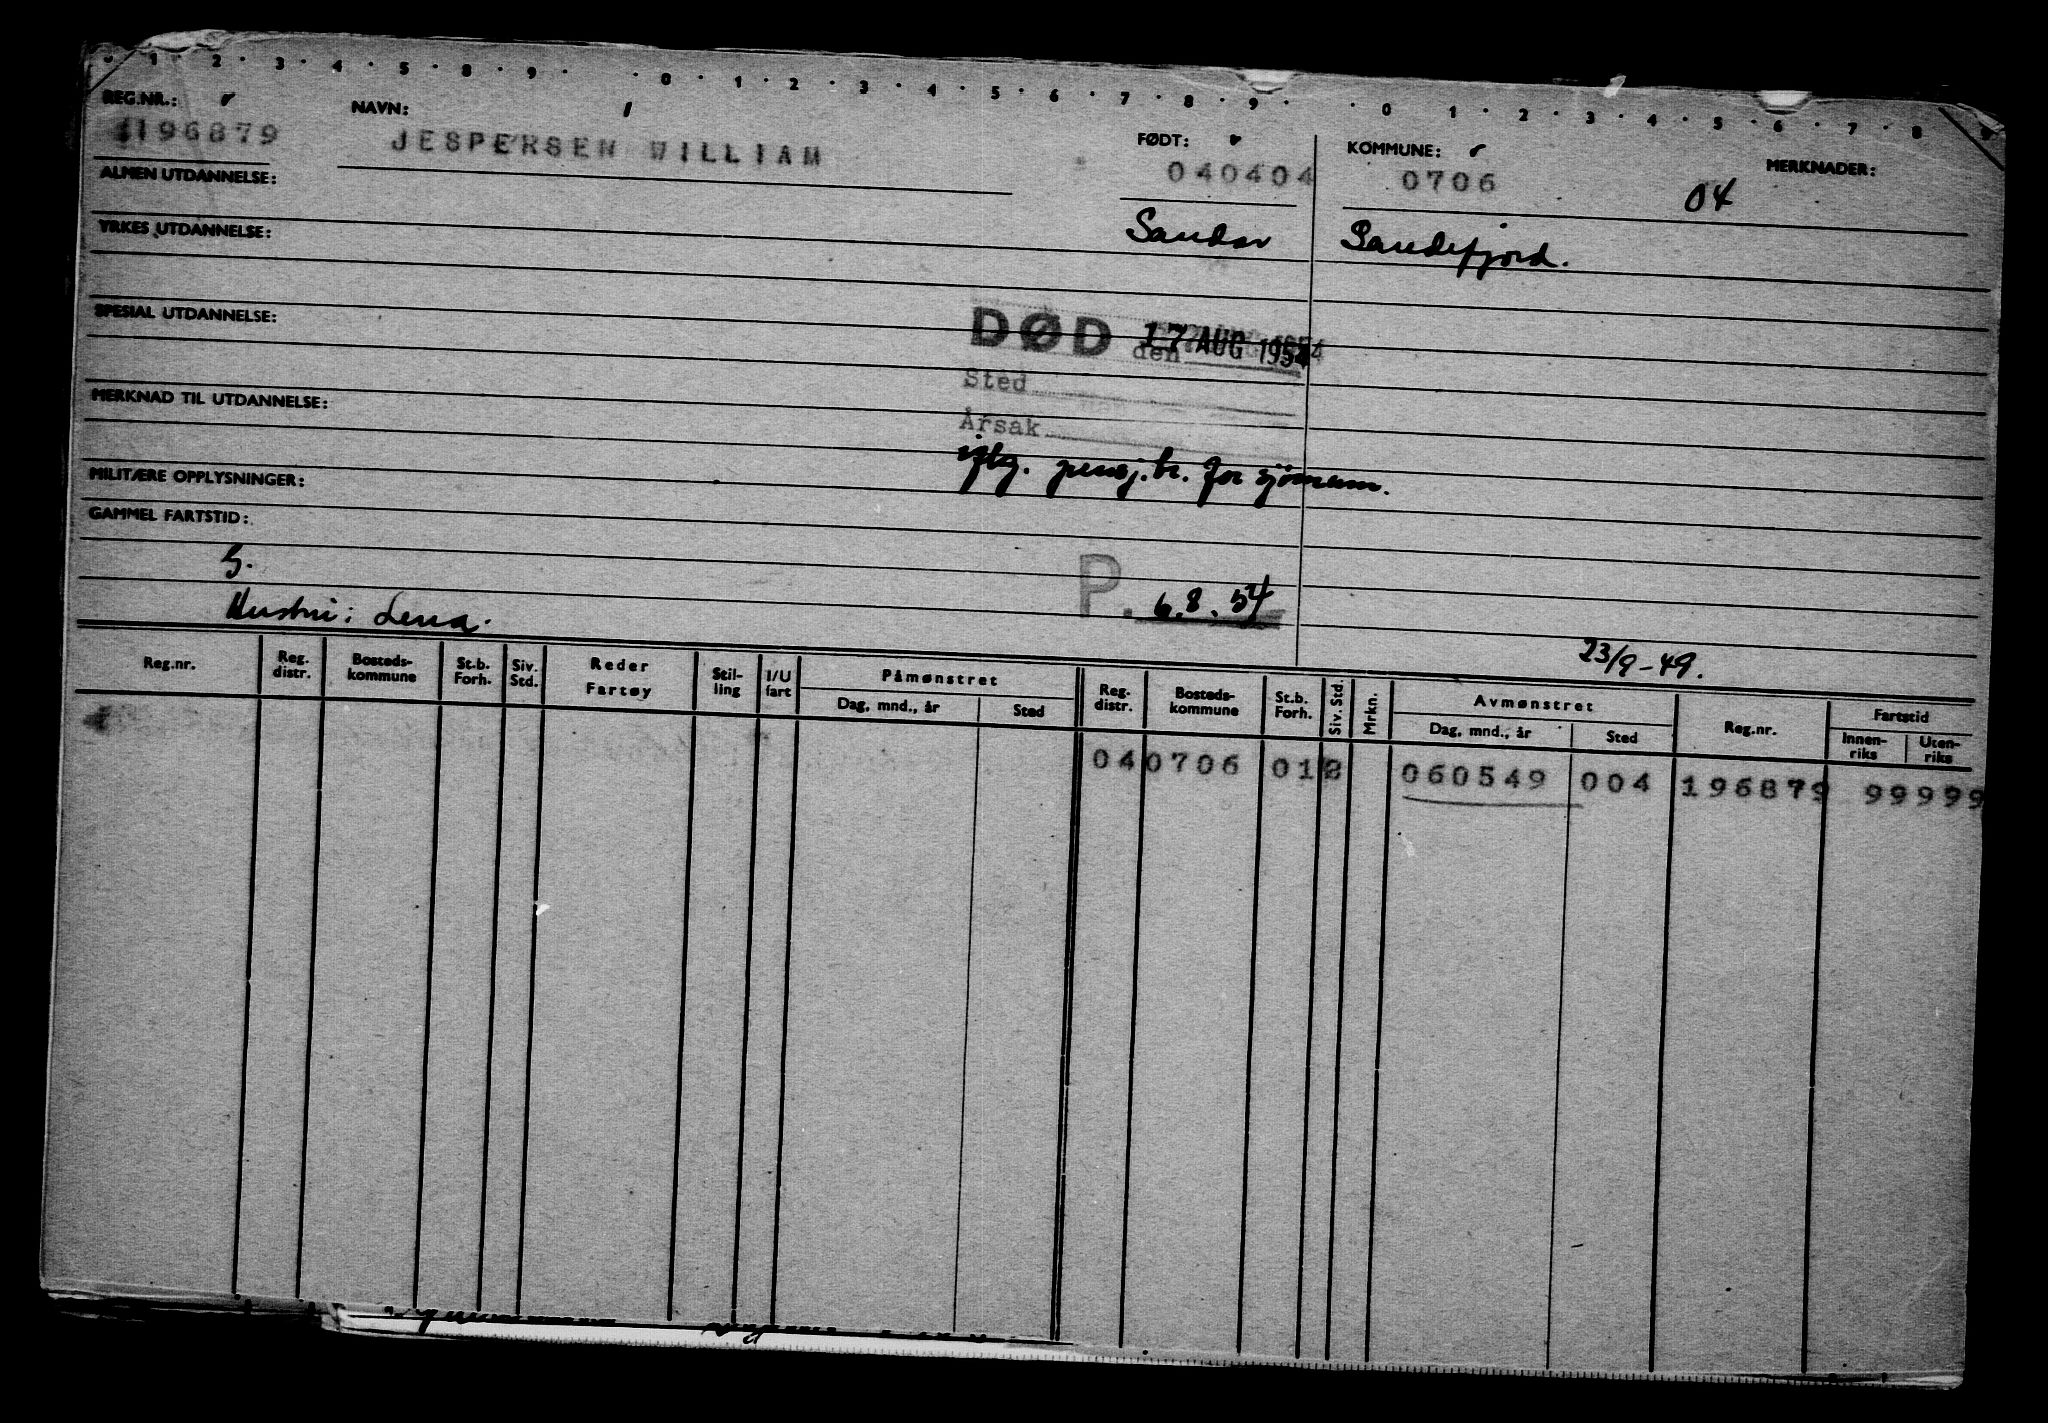 1 2 3 4 5 8 9 0 1 2 3 4 5 6 7 8 9 0 1 2 3 4 5 6 7 8 9
REG.NR.: NAVN: FØDT: KOMMUNE: MERKNADER:
196879 JESPERSEN WILLIAM 040404 0706 04
ALMEN UTDANNELSE:
Sandar Sandefjord.
YRKES UTDANNELSE:
SPESIAL UTDANNELSE:
DØD den 17 AUG 1954
Sted
MERKNAD TIL UTDANNELSE:
Årsak
iflg. pensj.br. for sjömenn.
MILITÆRE OPPLYSNINGER:
GAMMEL FARTSTID:
G.
P. 6.8.54
Hustru: Lena.
23/9-49.
Reg.nr. Reg. distr. Bosteds-kommune St.b. Forh. Siv. Std. Reder Fartøy Stil-ling I/U fart Påmønstret Dag, mnd., år Sted Reg. distr. Bosteds-kommune St.b. Forh. Siv. Std. Mrkn. Avmønstret Dag, mnd., år Sted Reg.nr. Fartstid Innen-riks Uten-riks
04 0706 01 2 060549 004 196879 99999